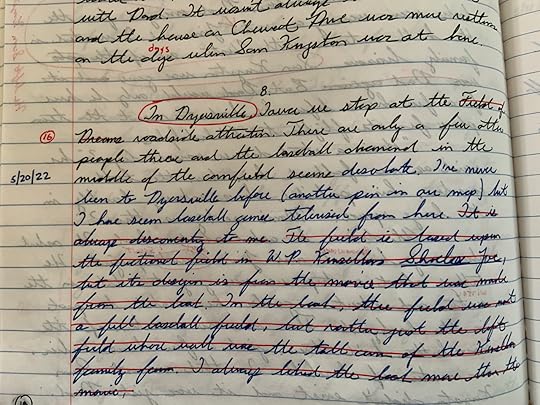 with Dad. It wasn't always
and the house on Cherwed Drive was more
days
on the days when Sam Kingston was at home.
8.
In Dyersville, Iowa we stop at the Field of
16
Dreams roadside attraction. There are only a few other
people there and the baseball diamond in the
5/20/22
middle of the cornfield seems desolate. I've never
been to Dyersville before (another pin in our map) but
I have seen baseball games televised from here. It is
always disconcerting to me. The field is based upon
the fictional field in W.P. Kinsella's Shoeless Joe,
but its design is from the movie that was made
from the book. In the book, the field was not
a full baseball field, but rather just the left
field whose wall was the tall corn of the Kinsella
family farm. I always liked the book more than the
movie,